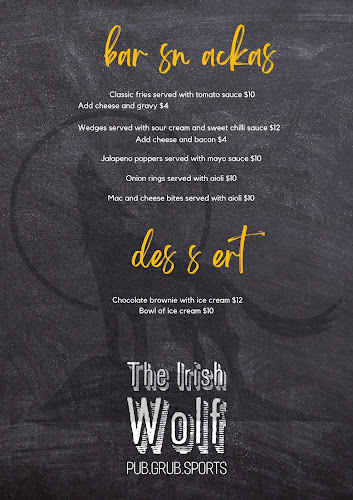 bar sn ackas
Classic fries served with tomato sauce $10
Add cheese and gravy $4
Wedges served with sour cream and sweet chilli sauce $12
Add cheese and bacon $4
Jalapeno poppers served with mayo sauce $10
Onion rings served with aioli $10
Mac and cheese bites served with aioli $10
des s ert
Chocolate brownie with ice cream $12
Bowl of ice cream $10
The Irish
Wolf
PUB.GRUB.SPORTS